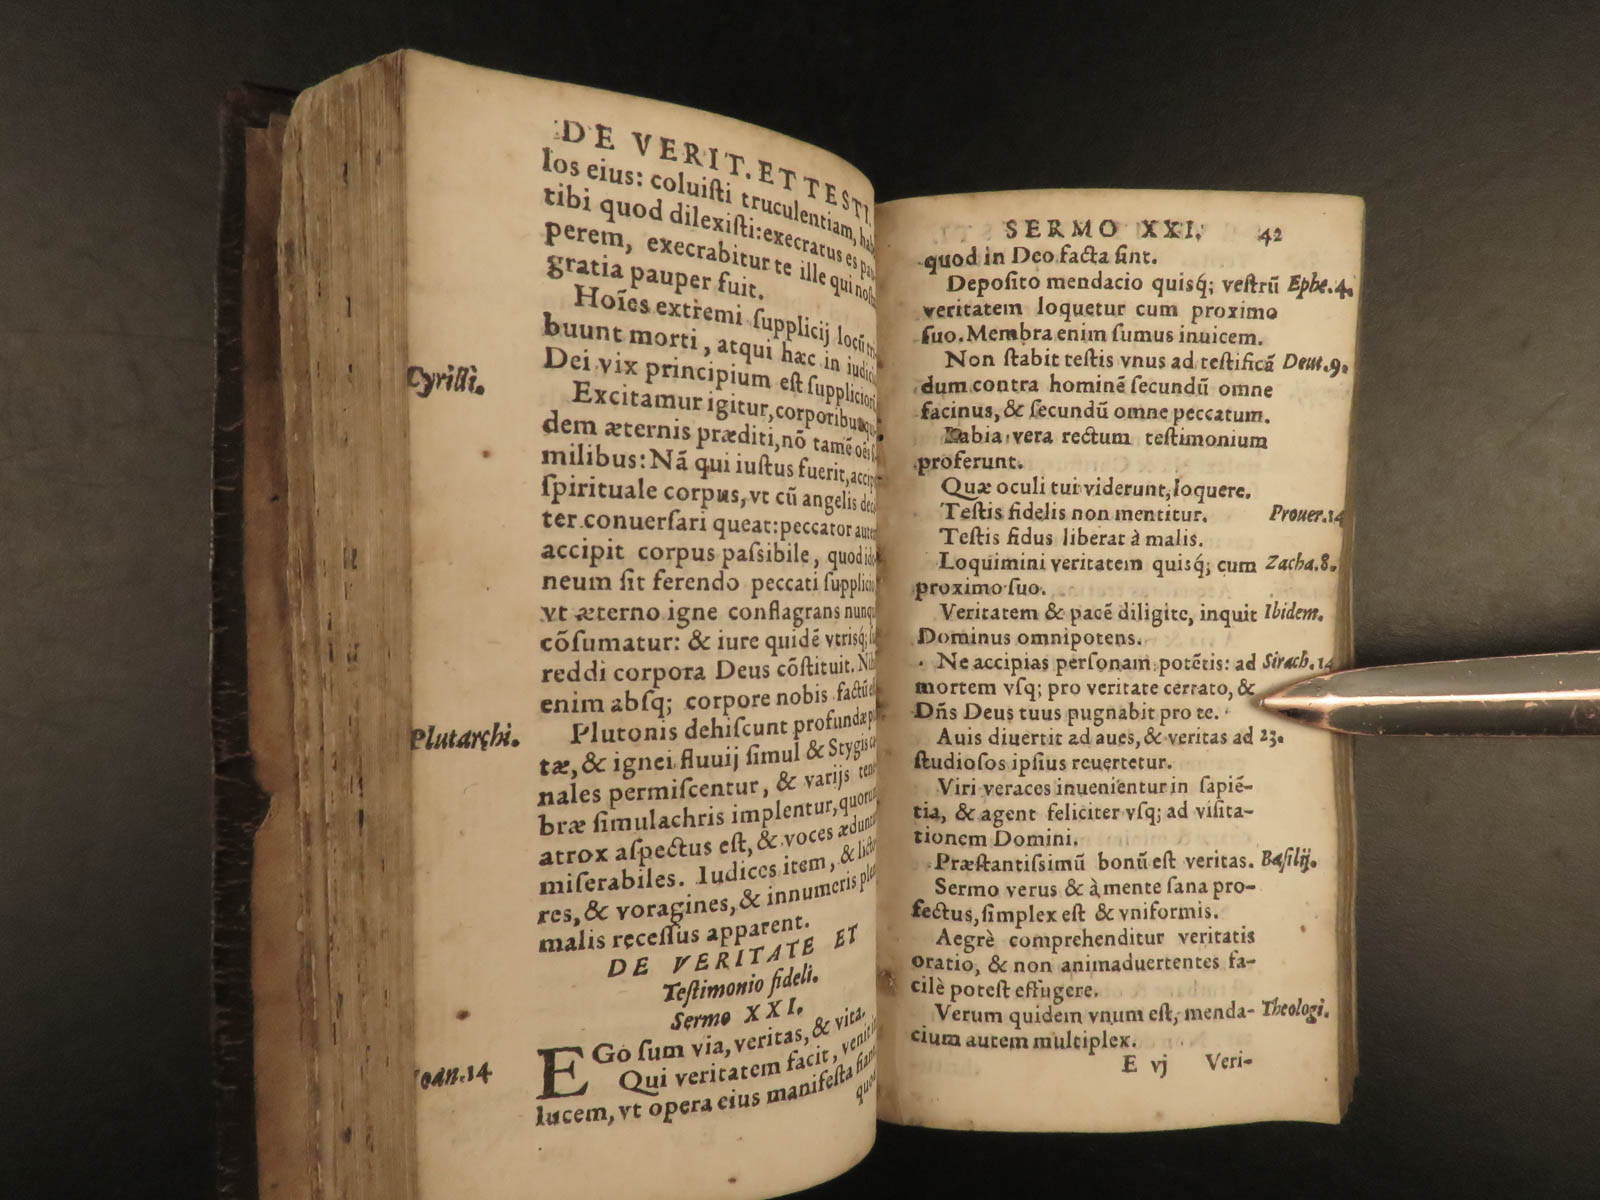 DE VERIT. ET TESTI.
los eius: coluiſti truculentiam,
tibi quod dilexiſti: execratus es
perem, execrabitur te ille qui
gratia pauper fuit.
Hoĩes extremi ſupplicij locũ
buunt morti, atqui hæc in
Dei vix principium eſt
Cyrilli.
Excitamur igitur, corporibus
dem æternis præditi, nõ tamẽ oẽs
milibus: Nã qui iuſtus fuerit,
ſpirituale corpus, vt cũ angelis
ter conuerſari queat: peccator
accipit corpus paſsibile, quod
neum ſit ferendo peccati
vt æterno igne conflagrans
cõſumatur: & iure quidẽ vtriſq́;
reddi corpora Deus cõſtituit.
enim abſq; corpore nobis
Plutarchi.
Plutonis dehiſcunt
tæ, & ignei fluuij ſimul & Stygis
nales permiſcentur, & varijs
bræ ſimulachris implentur,
atrox aſpectus eſt, & voces
miſerabiles. Iudices item, &
res, & voragines, & innumeris
malis receſſus apparent.
DE VERITATE ET
Teſtimonio fideli.
Sermo XXI.
Ioan.14
EGo ſum via, veritas, & vita.
Qui veritatem facit,
lucem, vt opera eius manifeſta
SERMO XXI. 42
quod in Deo facta ſint.
Depoſito mendacio quiſq́; veſtrũ Ephe.4.
veritatem loquetur cum proximo
ſuo. Membra enim ſumus inuicem.
Non ſtabit teſtis vnus ad teſtificã Deut.9.
dum contra hominẽ ſecundũ omne
facinus, & ſecundũ omne peccatum.
Labia vera rectum teſtimonium
proferunt.
Quæ oculi tui viderunt, loquere.
Teſtis fidelis non mentitur. Prouer.14
Teſtis fidus liberat à malis.
Loquimini veritatem quiſq́; cum Zacha.8.
proximo ſuo.
Veritatem & pacẽ diligite, inquit Ibidem.
Dominus omnipotens.
Ne accipias perſonam potẽtis: ad Sirach.14
mortem vſq; pro veritate certato, &
Dñs Deus tuus pugnabit pro te.
Auis diuertit ad aues, & veritas ad 23.
ſtudioſos ipſius reuertetur.
Viri veraces inuenientur in ſapiẽ-
tia, & agent feliciter vſq; ad viſita-
tionem Domini.
Præſtantiſsimũ bonũ eſt veritas. Baſilij.
Sermo verus & à mente ſana pro-
fectus, ſimplex eſt & vniformis.
Aegrè comprehenditur veritatis
oratio, & non animaduertentes fa-
cilè poteſt effugere.
Verum quidem vnum eſt, menda- Theologi.
cium autem multiplex.
E vj Veri-